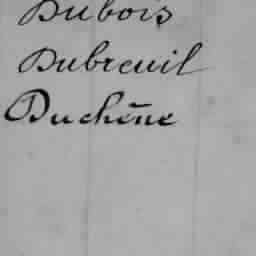 Dubois
Dubreuil
Duchêne